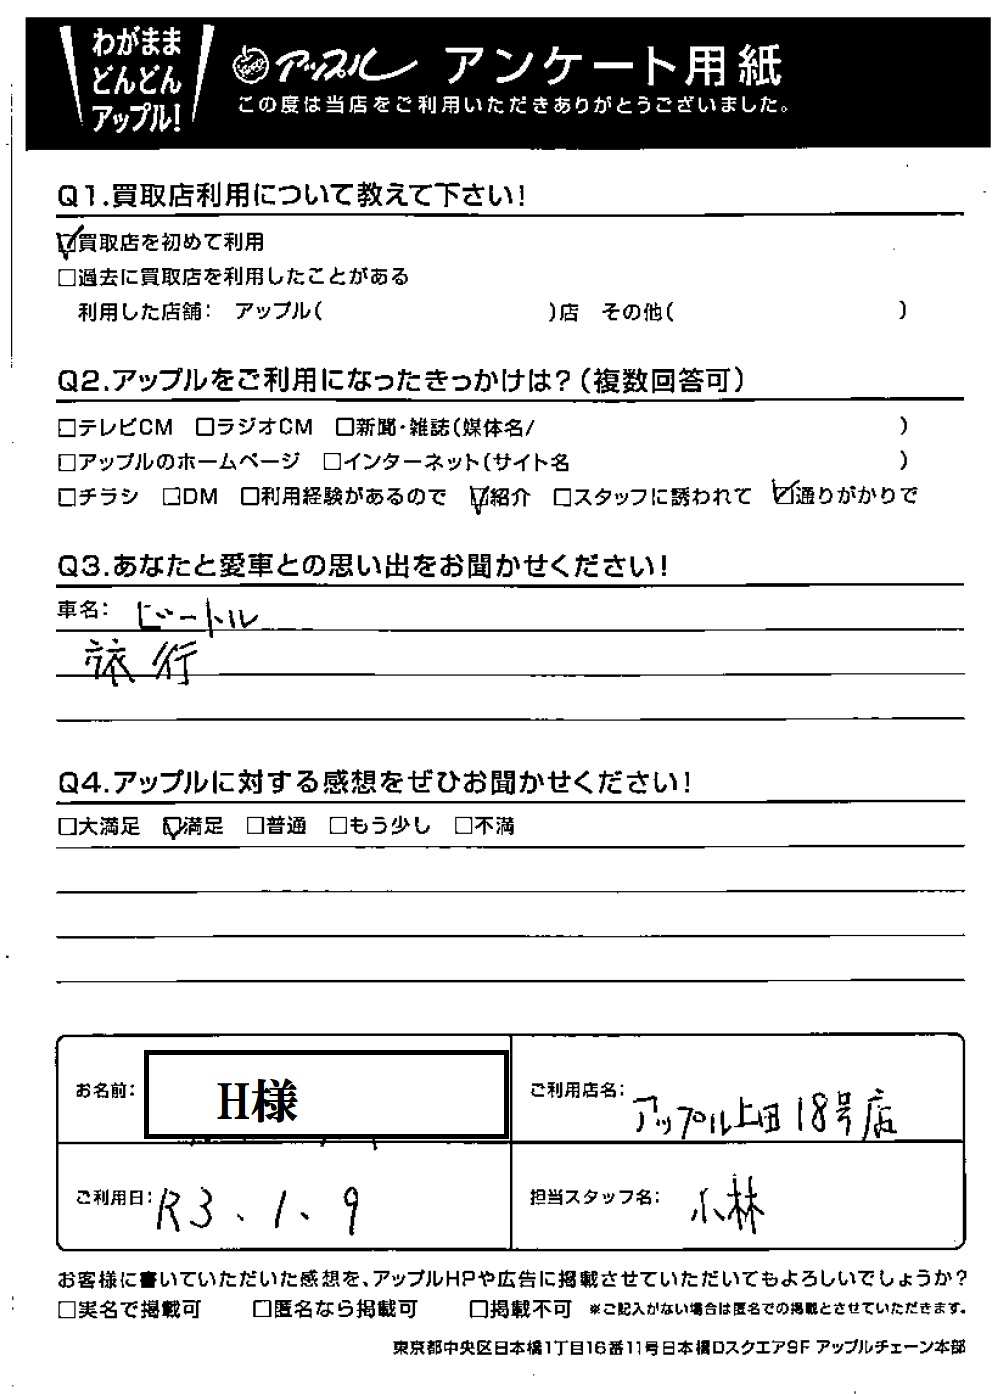 わがまま
どんどん
アップル!
アップル アンケート用紙
この度は当店をご利用いただきありがとうございました。
Q1.買取店利用について教えて下さい!
☑買取店を初めて利用
□過去に買取店を利用したことがある
利用した店舗: アップル( )店 その他( )
Q2.アップルをご利用になったきっかけは?(複数回答可)
□テレビCM □ラジオCM □新聞・雑誌(媒体名/ )
□アップルのホームページ □インターネット(サイト名 )
□チラシ □DM □利用経験があるので ☑紹介 □スタッフに誘われて ☑通りがかりで
Q3.あなたと愛車との思い出をお聞かせください!
車名: ビートル
旅行
Q4.アップルに対する感想をぜひお聞かせください!
□大満足 ☑満足 □普通 □もう少し □不満
お名前: H様
ご利用店名: アップル上田18号店
ご利用日: R3、1、9
担当スタッフ名: 小林
お客様に書いていただいた感想を、アップルHPや広告に掲載させていただいてもよろしいでしょうか?
□実名で掲載可 □匿名なら掲載可 □掲載不可 ※ご記入がない場合は匿名での掲載とさせていただきます。
東京都中央区日本橋1丁目16番11号日本橋Dスクエア9F アップルチェーン本部